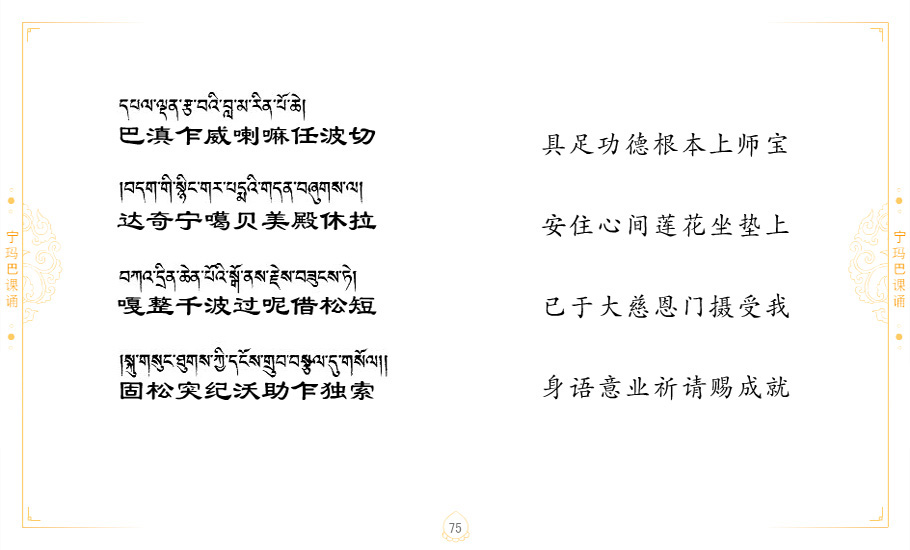 དཔལ་ལྡན་རྩ་བའི་བླ་མ་རིན་པོ་ཆེ།
巴滇乍威喇嘛任波切
具足功德根本上师宝
།བདག་གི་སྙིང་གར་པདྨའི་གདན་བཞུགས་ལ།
达奇宁噶贝美殿休拉
安住心间莲花坐垫上
བཀའ་དྲིན་ཆེན་པོའི་སྒོ་ནས་རྗེས་བཟུངས་ཏེ།
嘎整千波过呢借松短
已于大慈恩门摄受我
།སྐུ་གསུང་ཐུགས་ཀྱི་དངོས་གྲུབ་བསྩལ་དུ་གསོལ།།
固松突纪沃助乍独索
身语意业祈请赐成就
宁玛巴课诵
宁玛巴课诵
75